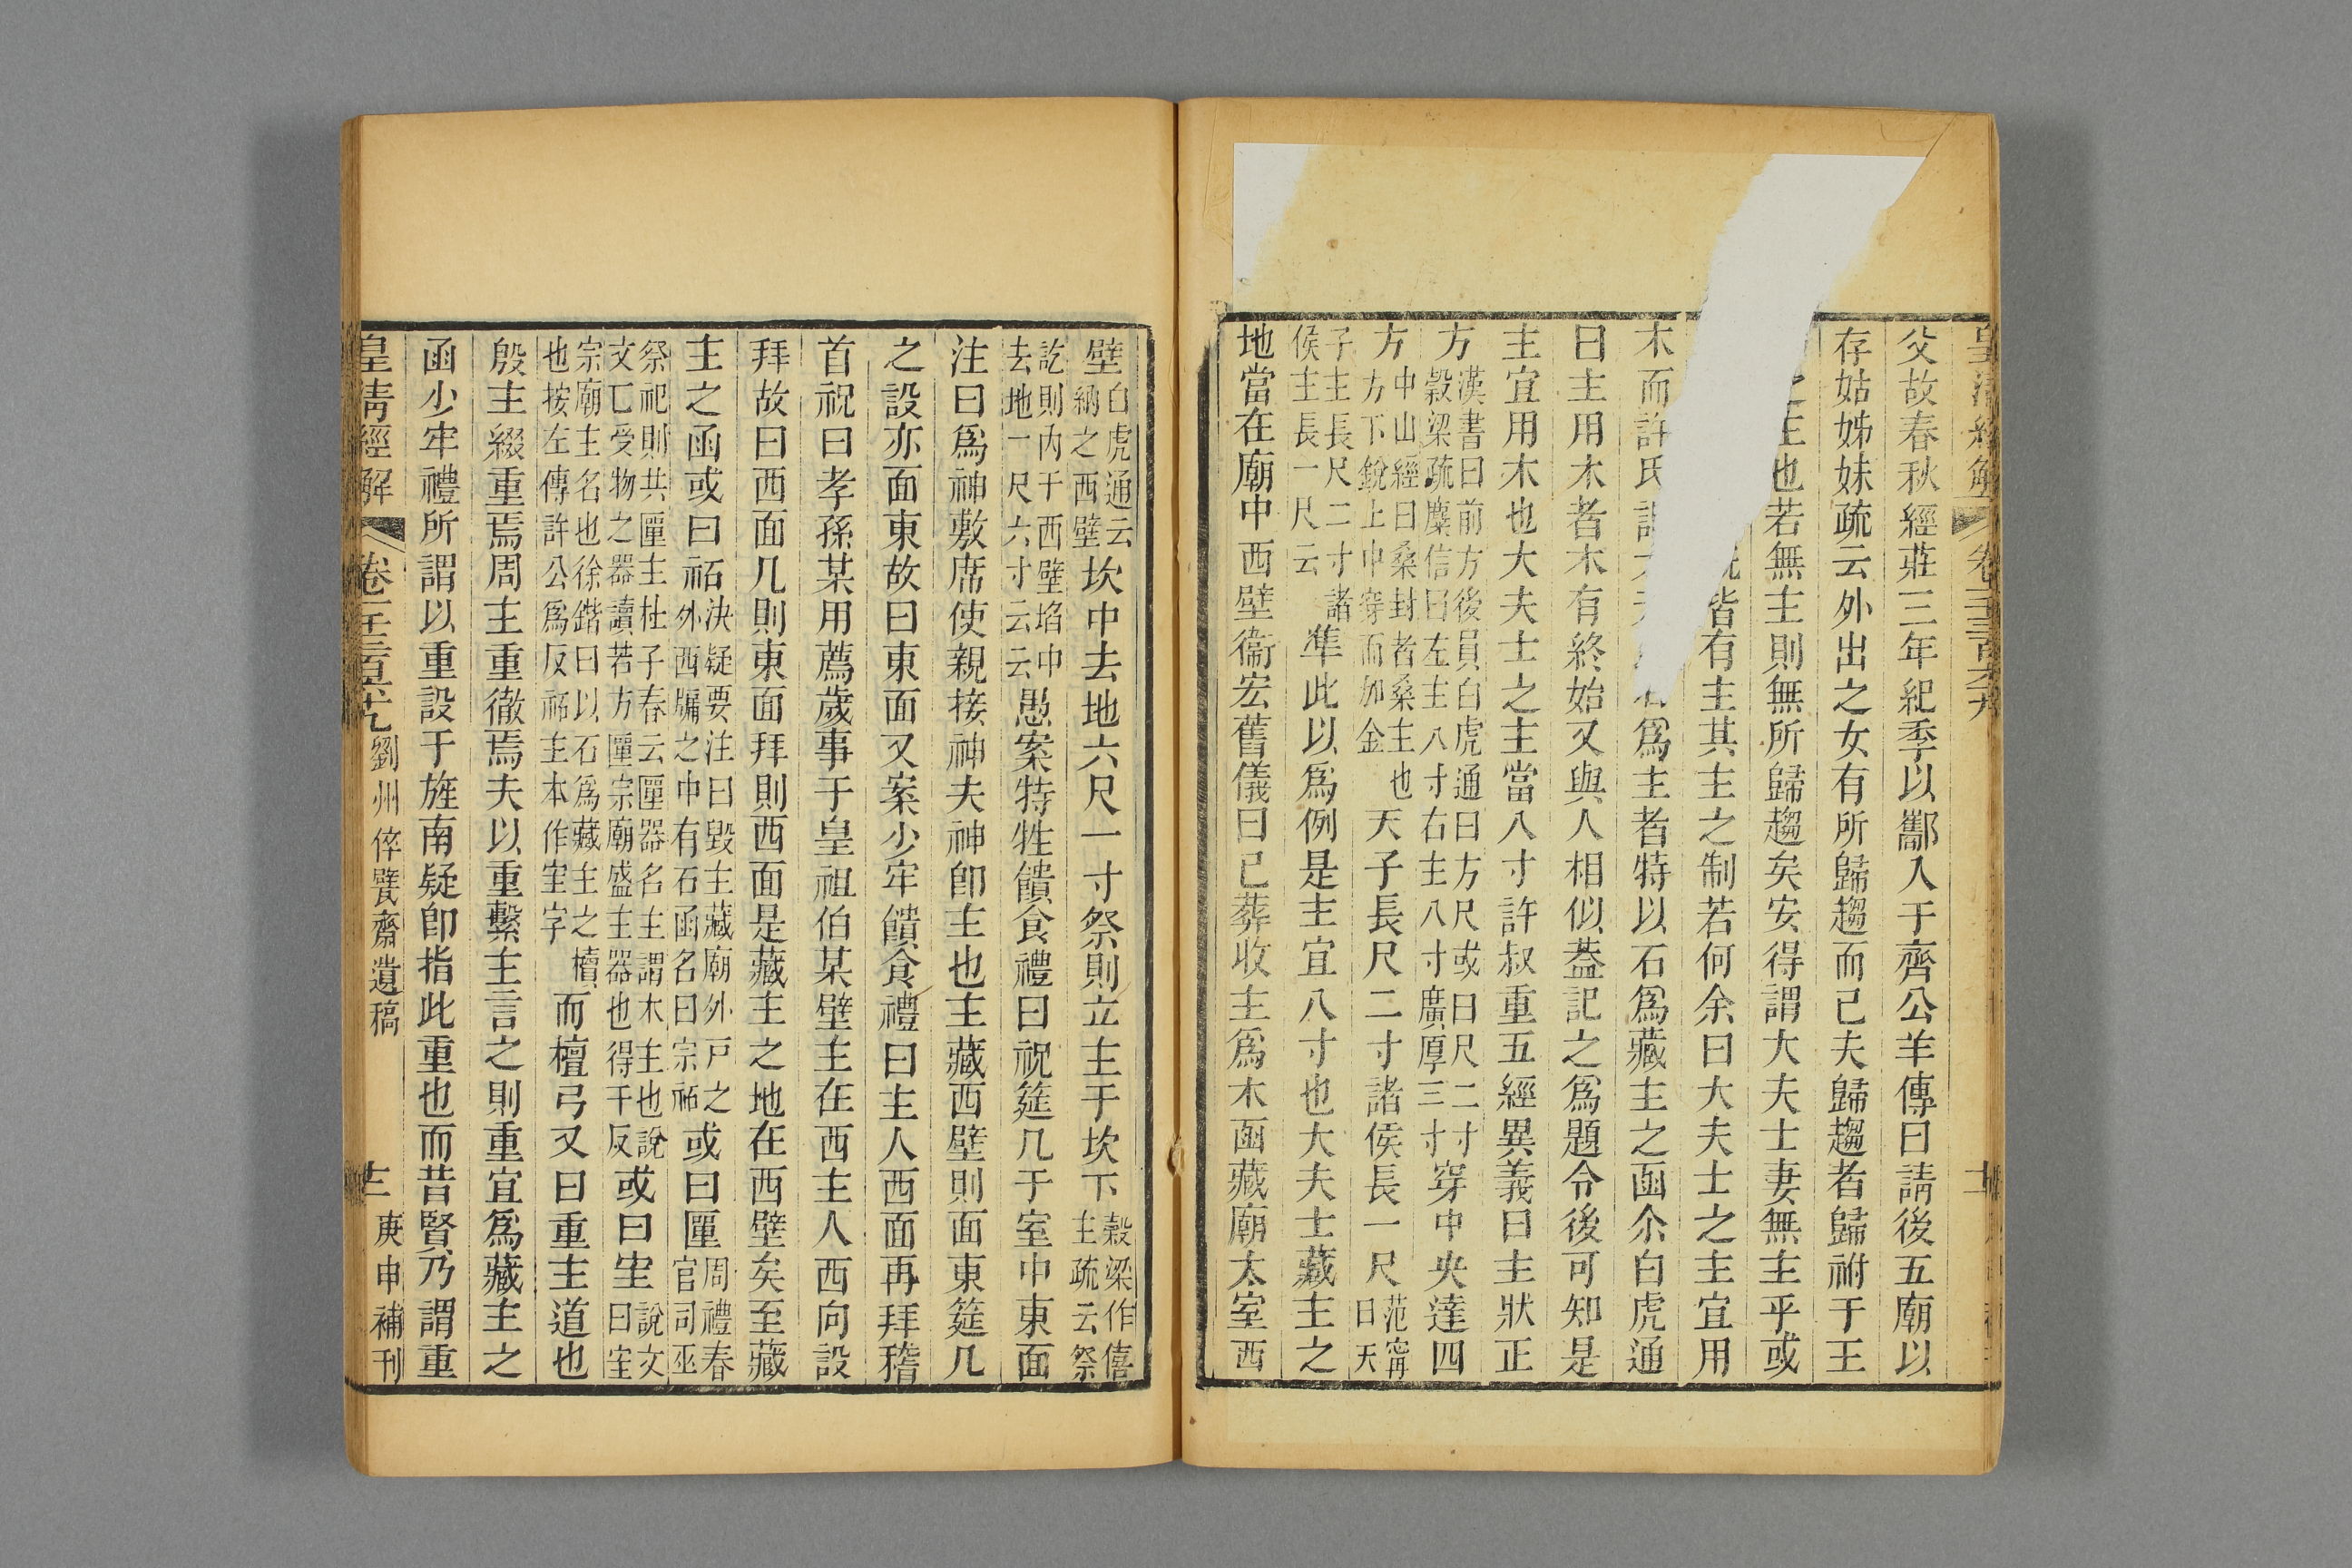 皇清經解
父故春秋經莊三年紀季以酅入于齊公羊傳曰請後五廟以
存姑姊妹疏云外出之女有所歸趨而已夫歸趨者歸祔于王
之主也若無主則無所歸趨矣安得謂大夫士妻無主乎或
皆有主其主之制若何余曰大夫士之主宜用
木而許氏爲主者特以石爲藏主之函尒白虎通
曰主用木者木有終始又與人相似葢記之爲題令後可知是
主宜用木也大夫士之主當八寸許叔重五經異義曰主狀正
方漢書曰前方後員白虎通曰方尺或曰尺二寸穀梁疏麋信曰左主八寸右主八寸廣厚三寸穿中央達四
方中山經曰桑封者桑主也方下銳上中穿而加金天子長尺二寸諸侯長一尺范甯曰天
子主長尺二寸諸侯主長一尺云準此以爲例是主宜八寸也大夫士藏主之
地當在廟中西壁衞宏舊儀曰已葬收主爲木函藏廟太室西
壁白虎通云納之西壁坎中去地六尺一寸祭則立主于坎下穀梁作僖主疏云祭
訖則內于西壁埳中去地一尺六寸云云愚案特牲饋食禮曰祝筵几于室中東面
注曰爲神敷席使親接神夫神卽主也主藏西壁則面東筵几
之設亦面東故曰東面又案少牢饋食禮曰主人西面再拜稽
首祝曰孝孫某用薦歲事于皇祖伯某壁主在西主人西向設
拜故曰西面几則東面拜則西面是藏主之地在西壁矣至藏
主之函或曰祏決疑要注曰毀主藏廟外戸之外西牖之中有石函名曰宗祏或曰匰周禮春官司巫
祭祀則共匰主杜子春云匰器名主謂木主也說文匸受物之器讀若方匰宗廟盛主器也得干反或曰宔說文曰宔
宗廟主名也徐鍇曰以石爲藏主之櫝也按左傳許公爲反祏主本作宔字而檀弓又曰重主道也
殷主綴重焉周主重徹焉夫以重繫主言之則重宜爲藏主之
函少牢禮所謂以重設于旌南疑卽指此重也而昔賢乃謂重
皇清經解
劉州倅甓齋遺稿
庚申補刊